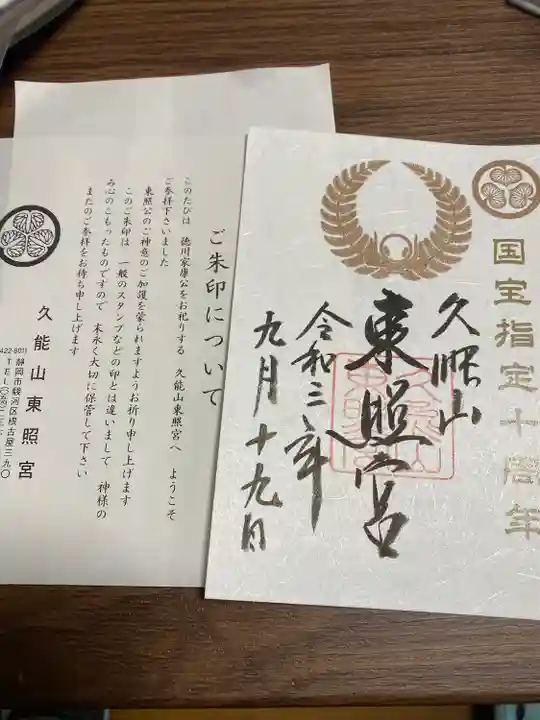 国宝指定十周年
久能山
東照宮
令和三年
九月十九日
ご朱印について
このたびは 徳川家康公をお祀りする 久能山東照宮へ ようこそ
ご参拝下さいました
東照公のご神意のご加護を蒙られますようお祈り申し上げます
このご朱印は 一般のスタンプなどの印とは違いまして 神様の
み心のこもったものですので 末永く大切に保管して下さい
またのご参拝をお待ち申し上げます
久能山東照宮
422-8011
静岡市駿河区根古屋三九〇